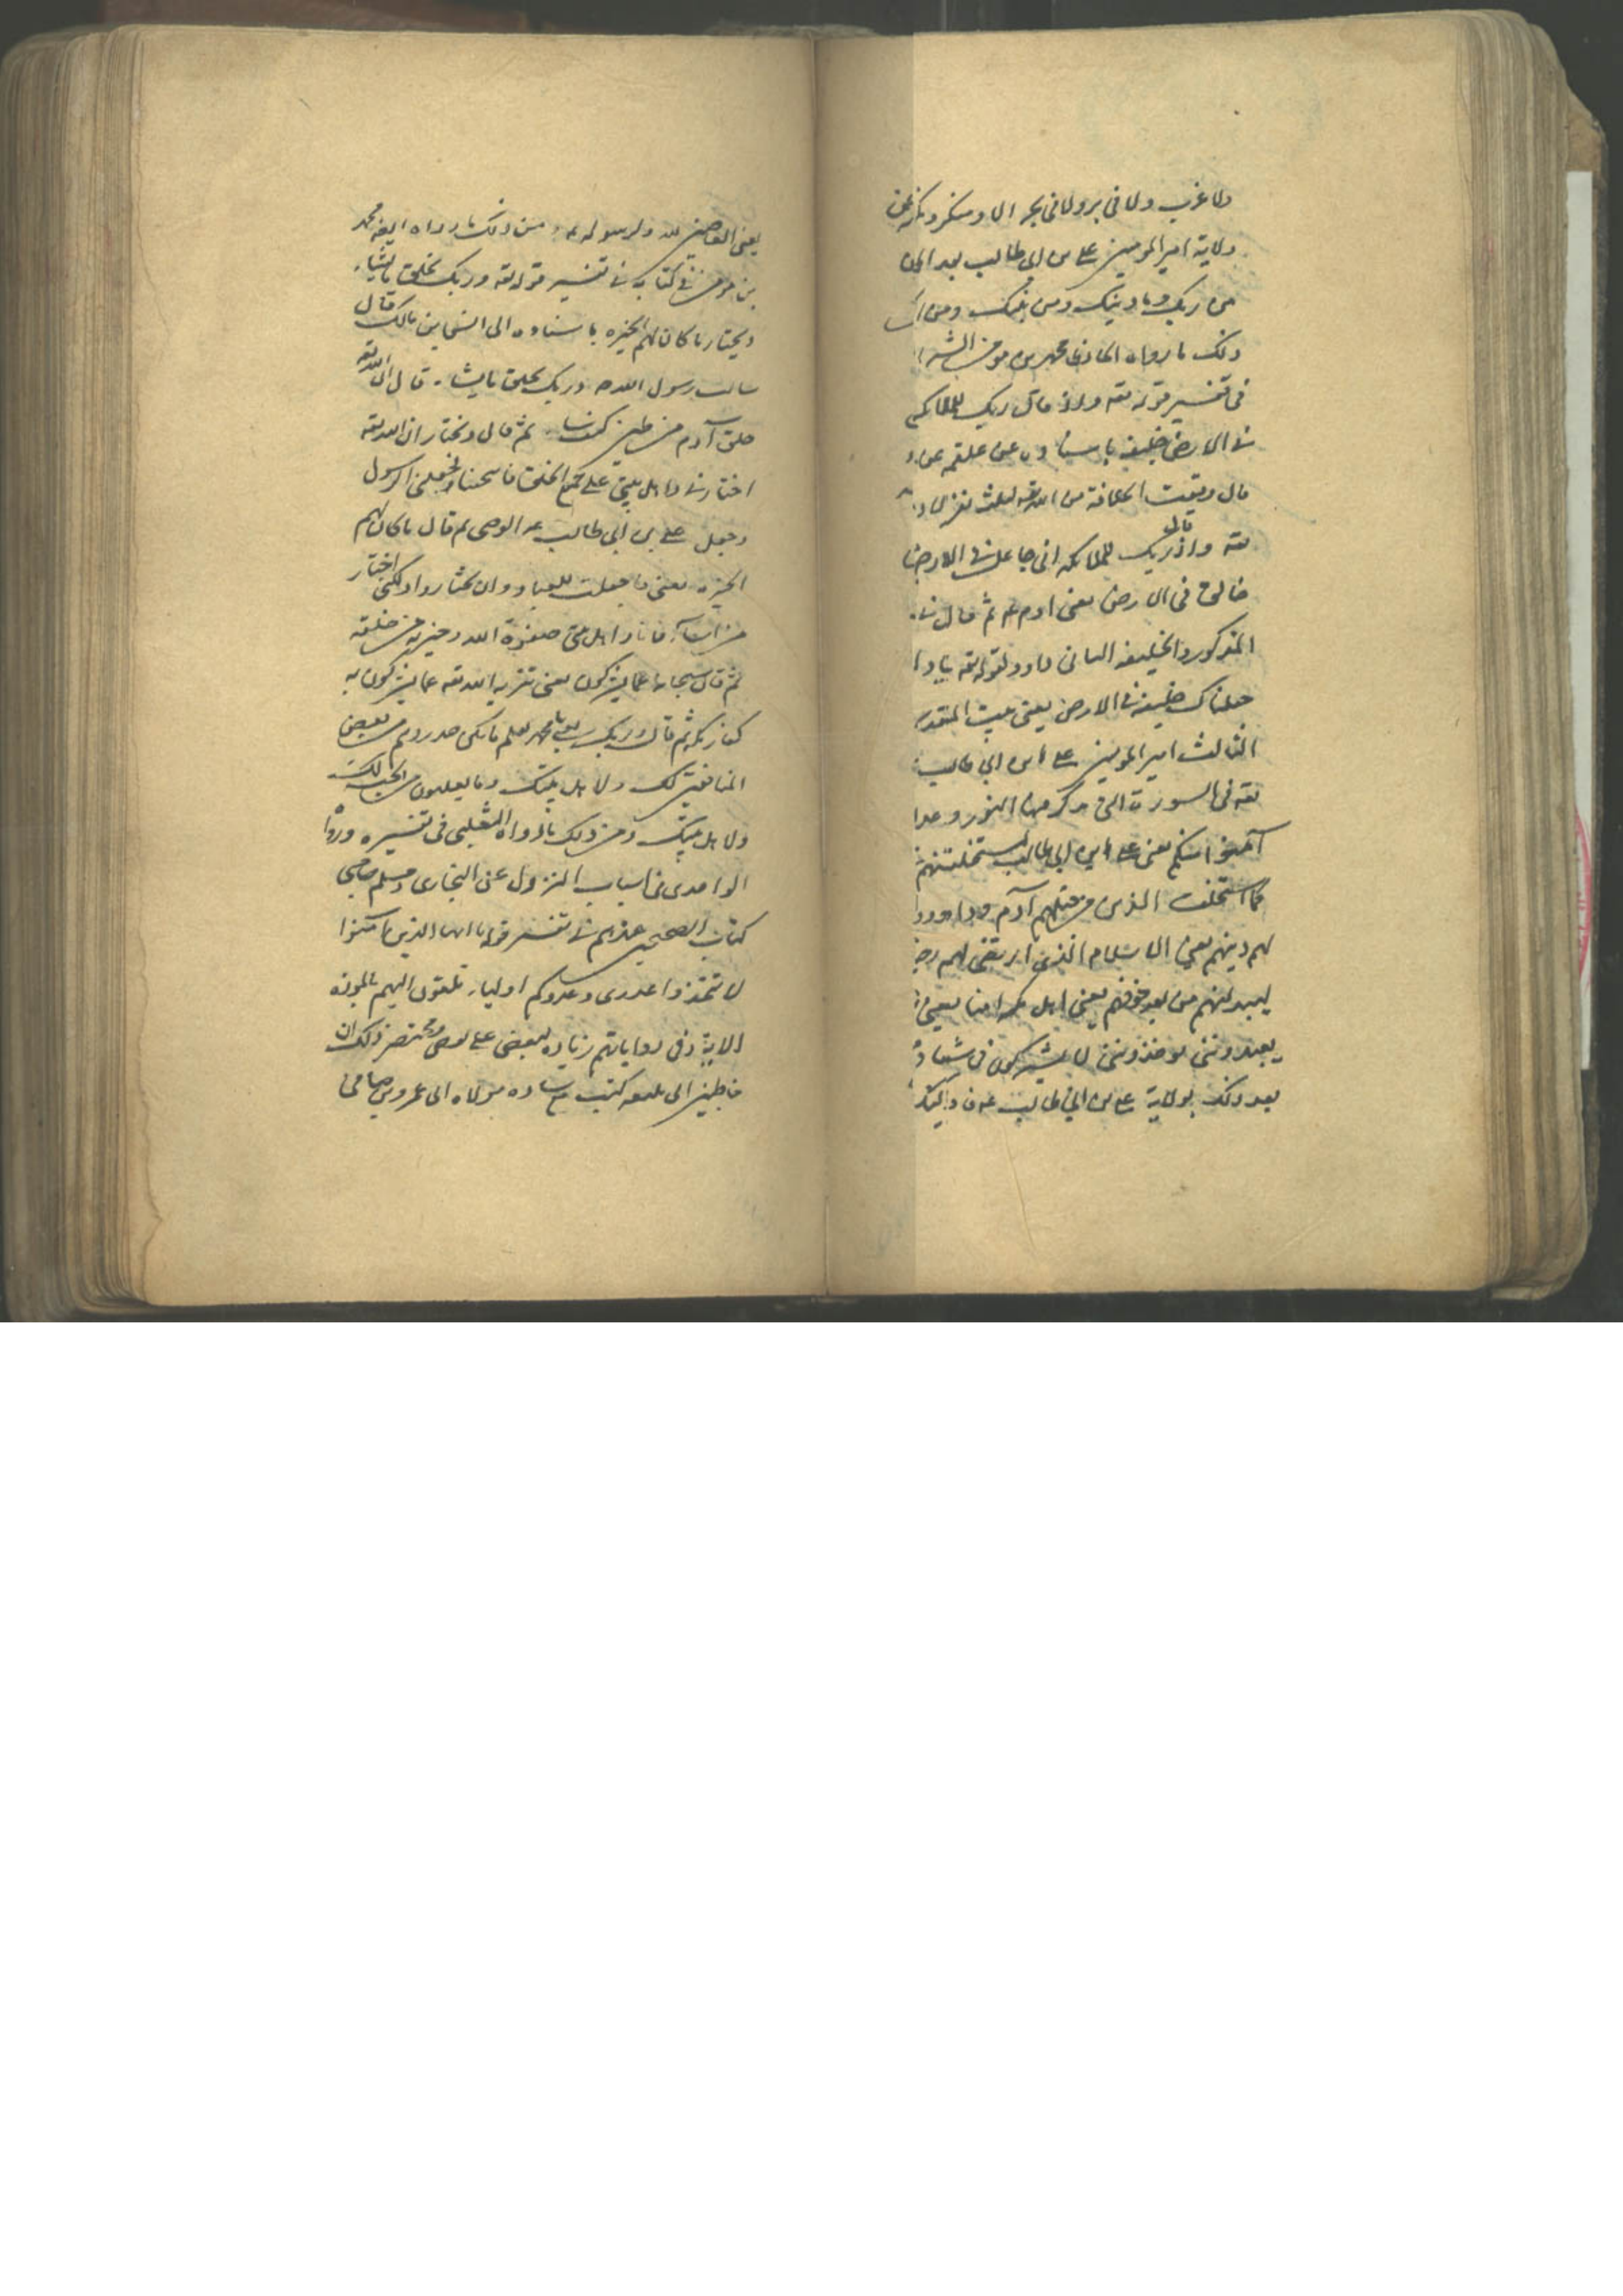 ولا غرب ولا فى بر ولا فى بحر الا ومنكر ونكير
ولاية امير المومنين على بن ابى طالب بعد الموت
من ربك وما دينك ومن نبيك ومن
ذلك ما رواه الحافظ محمد بن مومن الشيرا
فى تفسير قوله تعه واذ قال ربك للملائكه
فى الارض خليفه باسناده عن علقمه عن
قال وقعت الخلافة من الله تعه لثلث نفر لا
تعه واذ قال ربك للملائكه انى جاعل فى الارض
خالق فى الارض يعنى ادم عم ثم قال فى
المذكور والخليفه الثانى داود لقوله تعه يا دا
جعلناك خليفه فى الارض يعنى بيت المقدس
الثالث امير المومنين على ابن ابى طالب
تعه فى السورة التى يذكر فيها النور وعد ا
آمنوا منكم يعنى على ابن ابى طالب ليستخلفنهم
كما استخلف الذين من قبلهم آدم وداود و
لهم دينهم يعنى الاسلام الذى ارتضى لهم
ليبدلنهم من بعد خوفهم يعنى اهل مكه امنا يعنى
يعبدوننى يوحدوننى لا يشركون فى شيئا
بعد ذلك بولاية على بن ابى طالب عم
يعنى العاصين لله ولرسوله ومن ذلك ما رواه ايضه محمد
بن مومن فى كتابه فى تفسير قوله تعه وربك يخلق ما يشاء
ويختار ما كان لهم الخيره باسناده الى انس ابن مالك قال
سالت رسول الله ص وربك يخلق ما يشاء قال ان الله تعه
خلق آدم من طين كيف شاء ثم قال ويختار ان الله تعه
اختارنى واهل بيتى على جميع الخلق فانتجبنا فجعلنى الرسول
وجعل على بن ابى طالب عم الوصى ثم قال ما كان لهم
الخيره يعنى ما جعلت للعباد وان يختاروا ولكنى اختار
من اشاء فانا واهل بيتى صفوة الله وخيرته من خلقه
ثم قال سبحانه عما يشركون يعنى تنزيه الله تعه عما يشركون به
كفار مكه ثم قال وربك يعنى يا محمد يعلم ما تكن صدورهم من بعض
المنافقين لك ولاهل بيتك وما يعلنون من الحب لك
ولاهل بيتك ومن ذلك ما رواه الثعلبى فى تفسيره ورواه
الواحدى فى اسباب النزول عن البخارى ومسلم صاحبى
كتاب الصحيحين عندهم فى تفسير قوله يا ايها الذين آمنوا
لا تتخذوا عدوى وعدوكم اولياء تلقون اليهم بالموده
الايه وفى رواياتهم زياده لبعض على بعض ومختصر ذلك ان
حاطب بن ابى بلتعه كتب مع ساره مولاه ابى عمرو بن صيفى